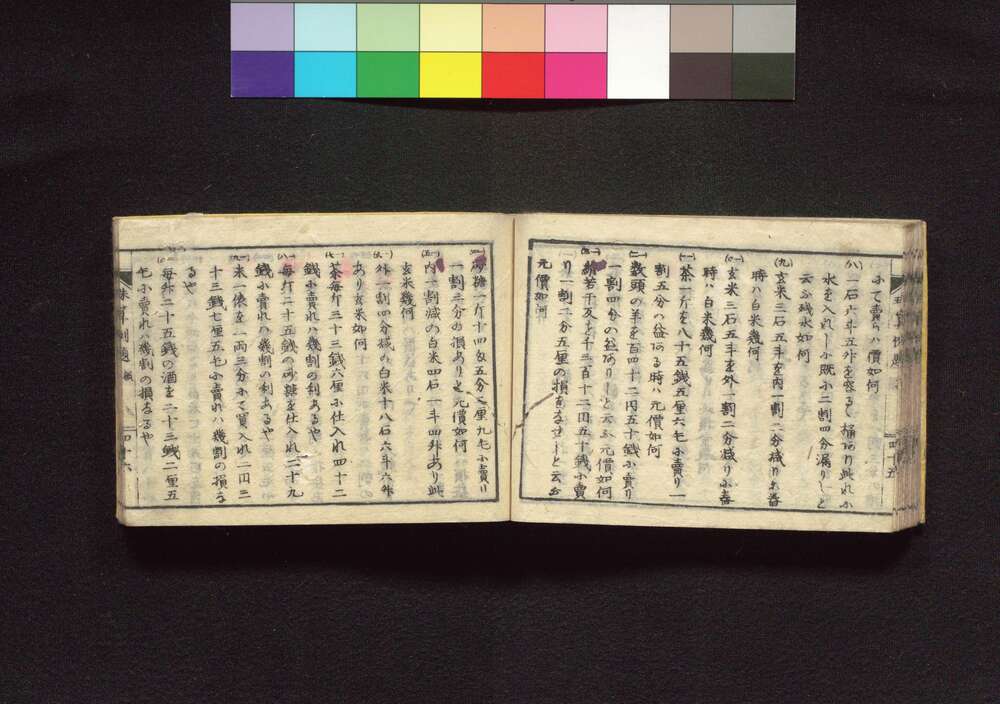 ふて賣らハ價如何
(八) 一石六斗五升を容るゝ桶あり此れふ
水を入れしふ既ふ二割四分漏りしと
云ふ残水如何
(九) 玄米三石五斗を内一割二分減りふ舂
時ハ白米幾何
(一〇) 玄米三石五斗を外一割二分減りふ舂
時ハ白米幾何
(一一) 茶一斤を八十五銭五厘六毛ふ賣り一
割五分の益ある時ハ元價如何
(一二) 数頭の羊を百四十二円五十銭ふ賣り
一割四分の益ありしと云ふ元價如何
若干反を千三百十二円五十銭ふ賣
り一割二分五厘の損をなせしと云ふ
元價如何
砂糖一斤十四銭五分二厘九毛ふ賣り
一割三分の損ありと元價如何
内一割減の白米四石一斗四升あり此
玄米幾何
外一割四分減の白米十八石六斗六升
あり玄米如何
茶毎斤三十三銭六厘ふ仕入れ四十二
銭ふ賣れハ幾割の利あるや
毎斤二十五銭の砂糖を仕入れ二十九
銭ふ賣れハ幾割の利あるや
米一俵を一両三分ふて買入れ一円三
十三銭七厘五毛ふ賣れハ幾割の損な
るや
毎升二十五銭の酒を二十三銭二厘五
毛ふ賣れハ幾割の損なるや
珠算例題
四十六
珠算例題
四十五